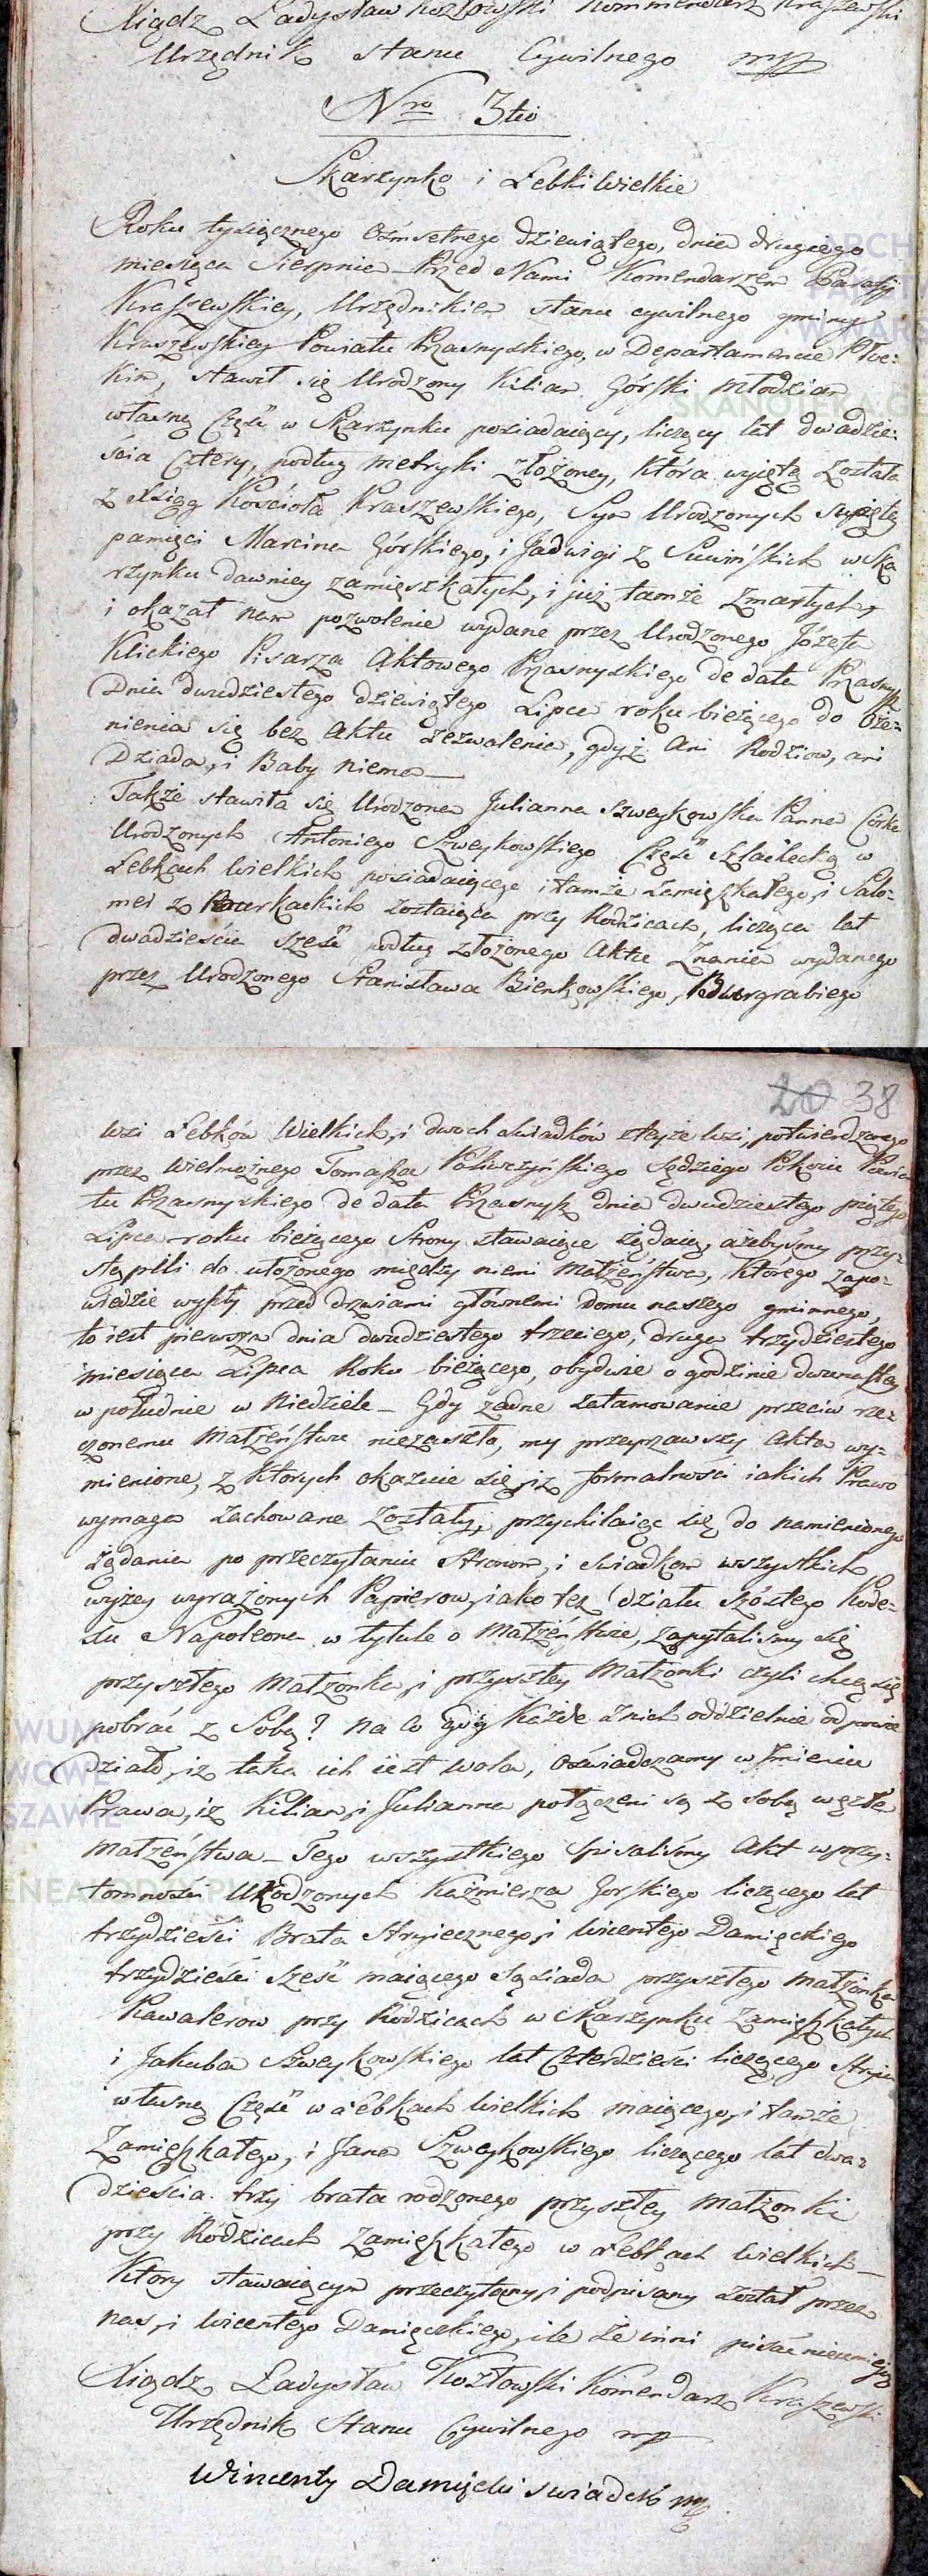 Xiądz Ładysław Kozłowski Kommendarz Kraszewski
Urzędnik stanu Cywilnego mp
Nro 3tio
Skarzynko i Łebki Wielkie
Roku tysiącznego Ośmsetnego dziewiątego, dnia drugiego
miesiąca Sierpnia Przed Nami Komendarzem Parafij
Kraszewskiey, Urzędnikiem stanu cywilnego gminy
Kraszewskiey Powiatu Przasnyskiego, w Departamencie Płoc:
kim, stawił się Urodzony Kilian Górski Młodzian
własną Część w Skarzynku posiadaiący, liczący lat dwadzie:
ścia Cztery, podług metryki złożoney, która wyiętą została
z Xsiąg Kościoła Kraszewskiego, Syn Urodzonych swiętey
pamięci Marcina Górskiego, i Jadwigi z w Ska
rzynku dawniey zamięszkałych, i już tamże zmarłych,
i okazał nam pozwolenie wydane przez Urodzonego Józefa
Klickiego Pisarza Aktowego Przasnyskiego de data Przasnysz
Dnia dwudziestego dziewiątego Lipca roku bieżącego do Oże:
nienia się bez Aktu zezwolenia, gdyż ani Rodziow, ani
Dziada, i Baby niema
Także stawiła się Urodzona Julianna Szweykowska Panna Córka
Urodzonych Antoniego Szweykowskiego Część Szlachecką w
Łebkach Wielkich posiadaiącego i tamże zamięszkałego, i Salo:
mei z zostaiąca przy Rodzicach, licząca lat
dwadzieścia sześć podług złożonego Aktu Znania wydanego
przez Urodzonego Stanisława Bienkowskiego, Podwurgrabiego
20 38
Wsi Łebków Wielkich, i dwoch swiadków zteyże Wsi, potwierdzonego
przez Wielmożnego Tomasza Sędziego Pokoiu Powia
tu Przasnyskiego de data Przasnysz dnia dwudziestego piątego
Lipca roku bieżącego Strony stawaiące żądaią, ażebyśmy przy:
stąpili do ułożonego między niemi Małżeństwa, którego zapo:
wiedzie wyszły przed drzwiami głównemi domu naszego gminnego,
to iest pierwsza dnia dwudziestego trzeciego, druga trzydziestego
miesiąca Lipca Roku bieżącego, obydwie o godzinie dwunastey
w południe w Niedziele Gdy żadne zatamowanie przeciw rze:
czonemu Małżeństwu niezaszło, my przeyrzawszy Akta wy:
mienione, z których okazuie się, iż formalności iakich Prawo
wymaga zachowane zostały, przychilaiąc się do namienionego
żądania po przeczytaniu Stronom, i swiadkom wszystkich
wyżey wyrażonych Papierow, iako też działu szóstego Kode:
xu Napoleona w tytule o Małżeństwie, zapytaliśmy się
przyszłego Małżonka, i przyszłey Małżonki czyli chcą się
pobrać z Sobą? na co gdy Każde znich oddzielnie odpowie
działo, iż taka ich iest wola, Oświadczamy w Jmieniu
Prawa, iż Kilian, i Julianna połączeni są z sobą węzłem
Małżeństwa Tego wszystkiego Spisaliśmy Akt w przy:
tomności Urodzonych Kaźmierza Gorskiego liczącego lat
trzydzieści Brata Stryiecznego, i Wicentego Damięckiego
trzydzieści sześć maiącego Sąsiada przyszłego Małżonka
Kawalerow przy Rodzicach w Skarzynku Zamięszkałych
i Jakuba Szweykowskiego lat Czterdzieści liczącego Stryia
własną Część w Łebkach Wielkich maiącego, i tamże
Zamięszkałego, i Jana Szweykowskiego liczącego lat dwa:
dzieścia trzy brata rodzonego przyszłey Małżonki
przy Rodzicach Zamięszkałego w Łebkach Wielkich
Ktory stawaiącym przeczytany, i podpisany został przez
nas, i Wicentego Damięckiego, ile że inni pisać nieumieją
Xiądz Ładysław Kozłowski Komendarz Kraszewski
Urzędnik Stanu Cywilnego mp
Wincenty Damięcki swiadek mp